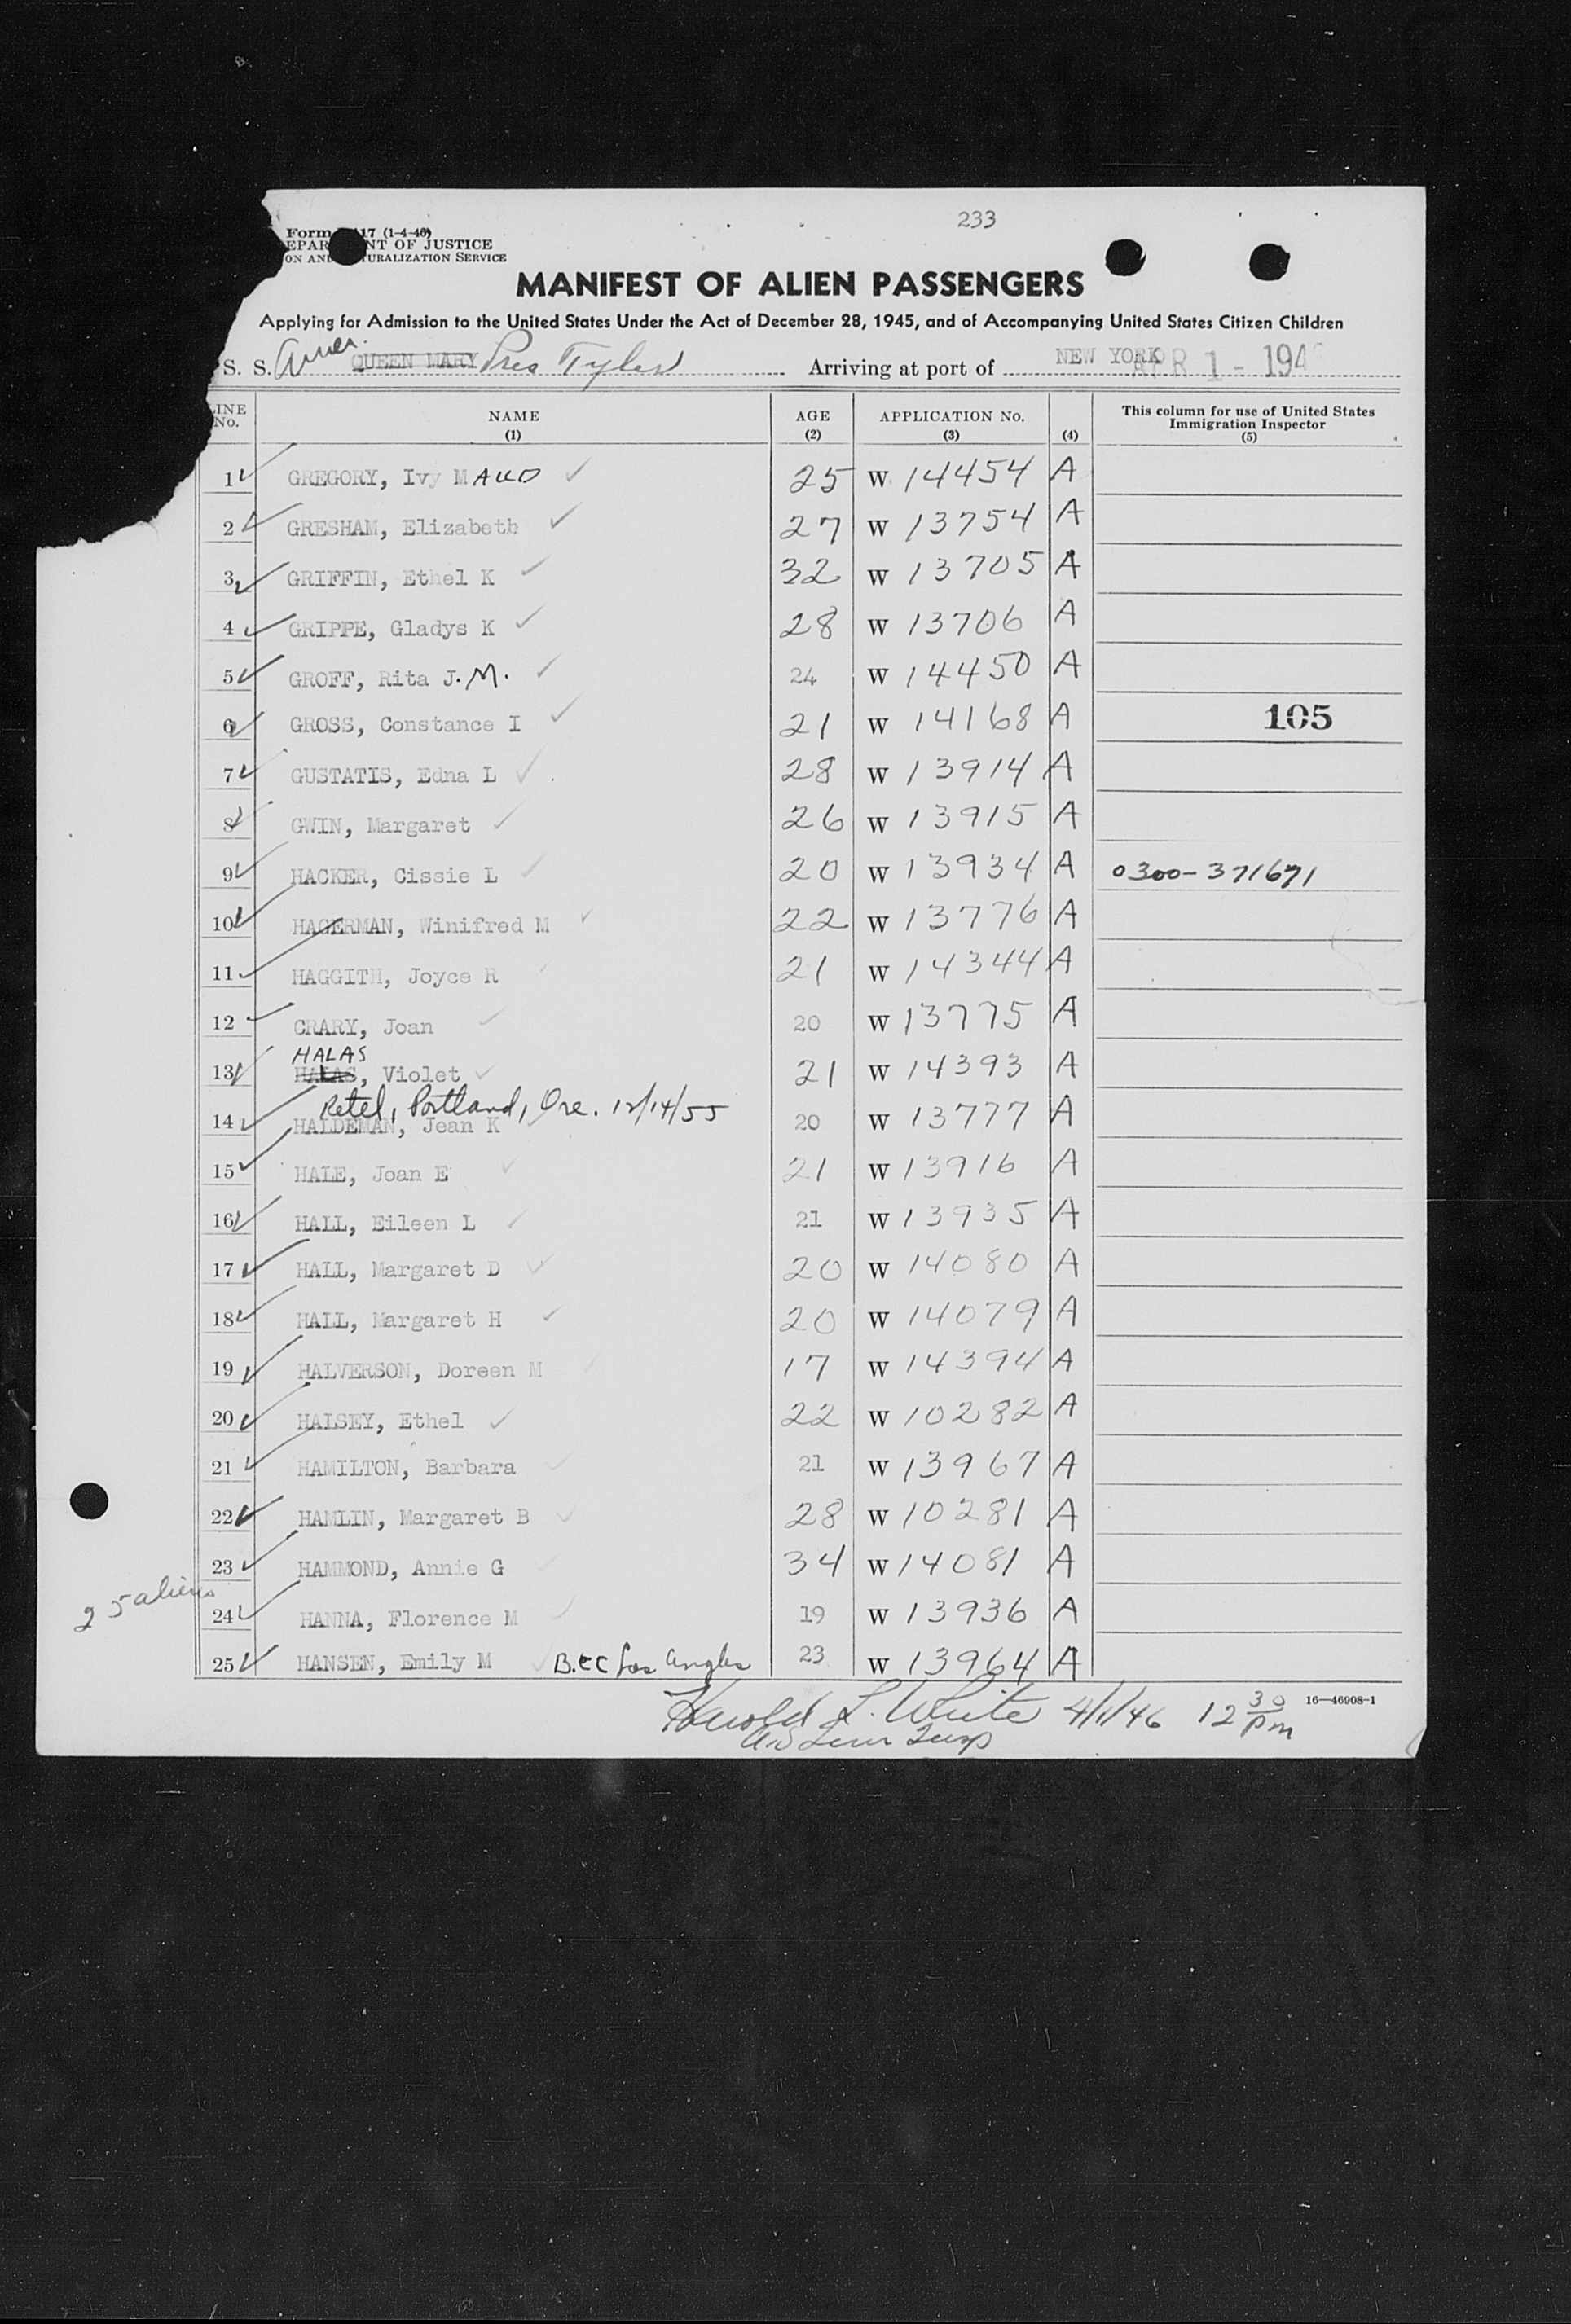 233
Form 17 (1-4-46)
EPAR NT OF JUSTICE
ON AND TURALIZATION SERVICE
MANIFEST OF ALIEN PASSENGERS
Applying for Admission to the United States Under the Act of December 28, 1945, and of Accompanying United States Citizen Children
S. S. Amer. QUEEN MARY Pres Tyler Arriving at port of NEW YORK APR 1 - 194
LINE No. NAME (1) AGE (2) APPLICATION No. (3) (4) This column for use of United States Immigration Inspector (5)
1 GREGORY, Ivy MAUD 25 W 14454 A
2 GRESHAM, Elizabeth 27 W 13754 A
3 GRIFFIN, Ethel K 32 W 13705 A
4 GRIPPE, Gladys K 28 W 13706 A
5 GROFF, Rita J. M. 24 W 14450 A
6 GROSS, Constance I 21 W 14168 A 105
7 GUSTATIS, Edna L 28 W 13914 A
8 GWIN, Margaret 26 W 13915 A
9 HACKER, Cissie L 20 W 13934 A 0300-371671
10 HAGERMAN, Winifred M 22 W 13776 A
11 HAGGITH, Joyce R 21 W 14344 A
12 CRARY, Joan 20 W 13775 A
HALAS
13 HALAS, Violet 21 W 14393 A
Retd, Portland, Ore. 12/14/55
14 HALDEMAN, Jean K 20 W 13777 A
15 HALE, Joan E 21 W 13916 A
16 HALL, Eileen L 21 W 13935 A
17 HALL, Margaret D 20 W 14080 A
18 HALL, Margaret H 20 W 14079 A
19 HALVERSON, Doreen M 17 W 14394 A
20 HALSEY, Ethel 22 W 10282 A
21 HAMILTON, Barbara 21 W 13967 A
22 HAMLIN, Margaret B 28 W 10281 A
23 HAMMOND, Annie G 34 W 14081 A
25 aliens
24 HANNA, Florence M 19 W 13936 A
25 HANSEN, Emily M B.CC Los Angles 23 W 13964 A
Harold L. White 4/1/46 12 30 pm 16—46908-1